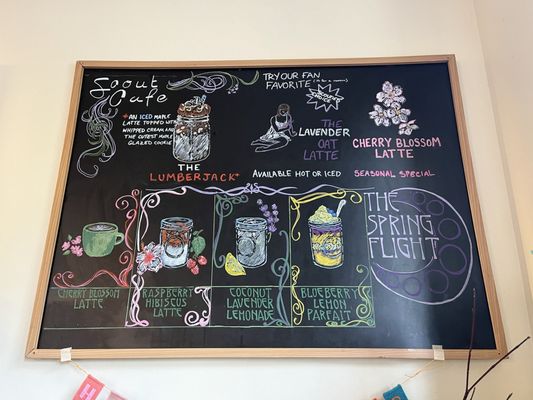 Scout
Cafe
+AN ICED MAPLE
LATTE TOPPED WITH
WHIPPED CREAM AND
THE CUTEST MAPLE
GLAZED COOKIE
THE
LUMBERJACK+
TRY OUR FAN
FAVORITE
THE
LAVENDER
OAT
LATTE
AVAILABLE HOT OR ICED
CHERRY BLOSSOM
LATTE
SEASONAL SPECIAL
CHERRY BLOSSOM
LATTE
RASPBERRY
HIBISCUS
LATTE
COCONUT
LAVENDER
LEMONADE
BLUEBERRY
LEMON
PARFAIT
THE
SPRING
FLIGHT